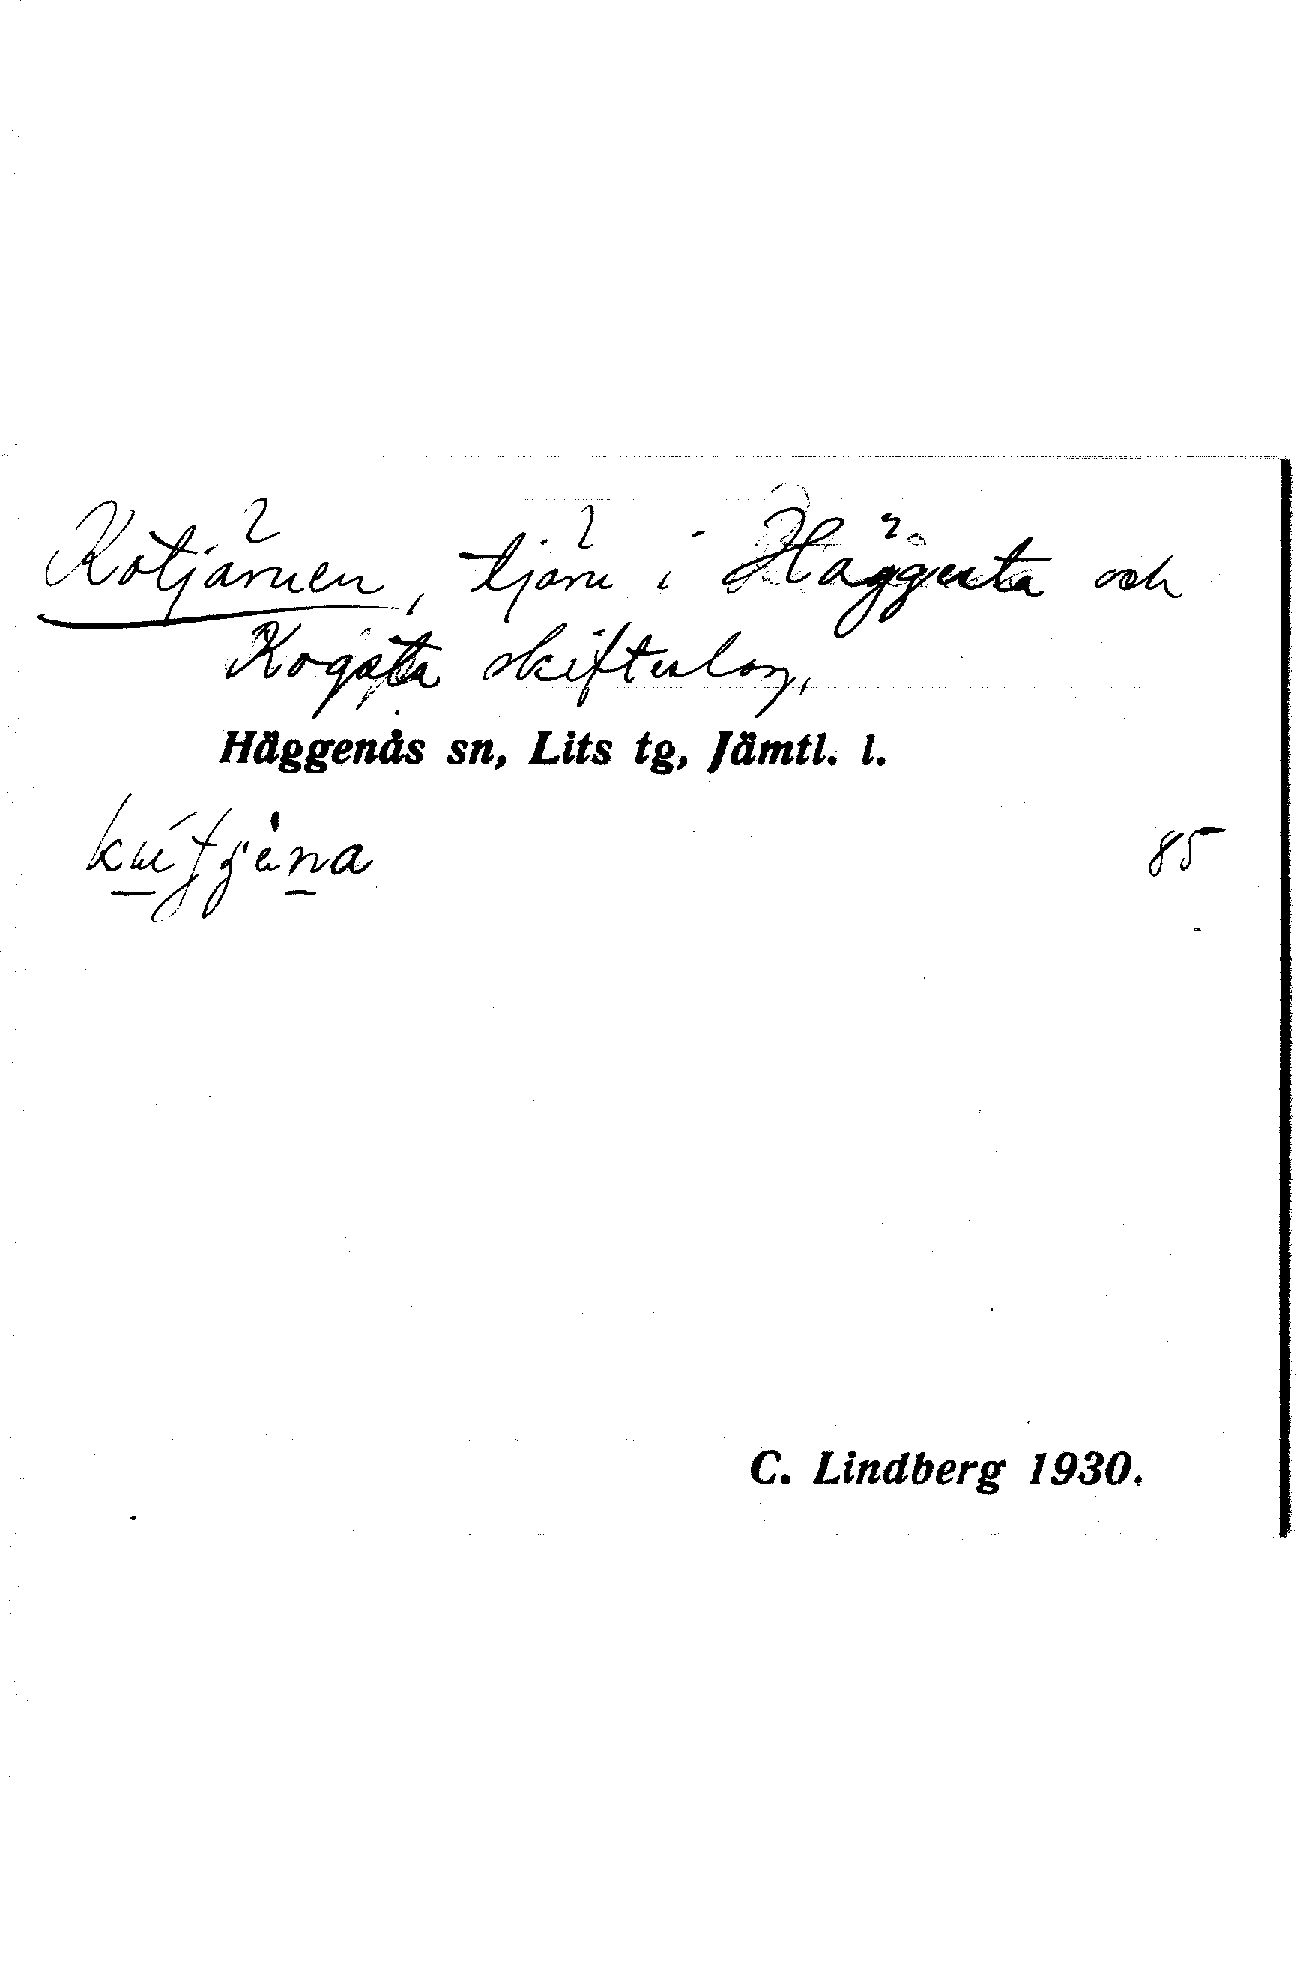 Kotjärnen, tjärn i Häggesta och
Kogsta skifteslag,
Häggenås sn, Lits tg, Jämtl. l.
85
C. Lindberg 1930.